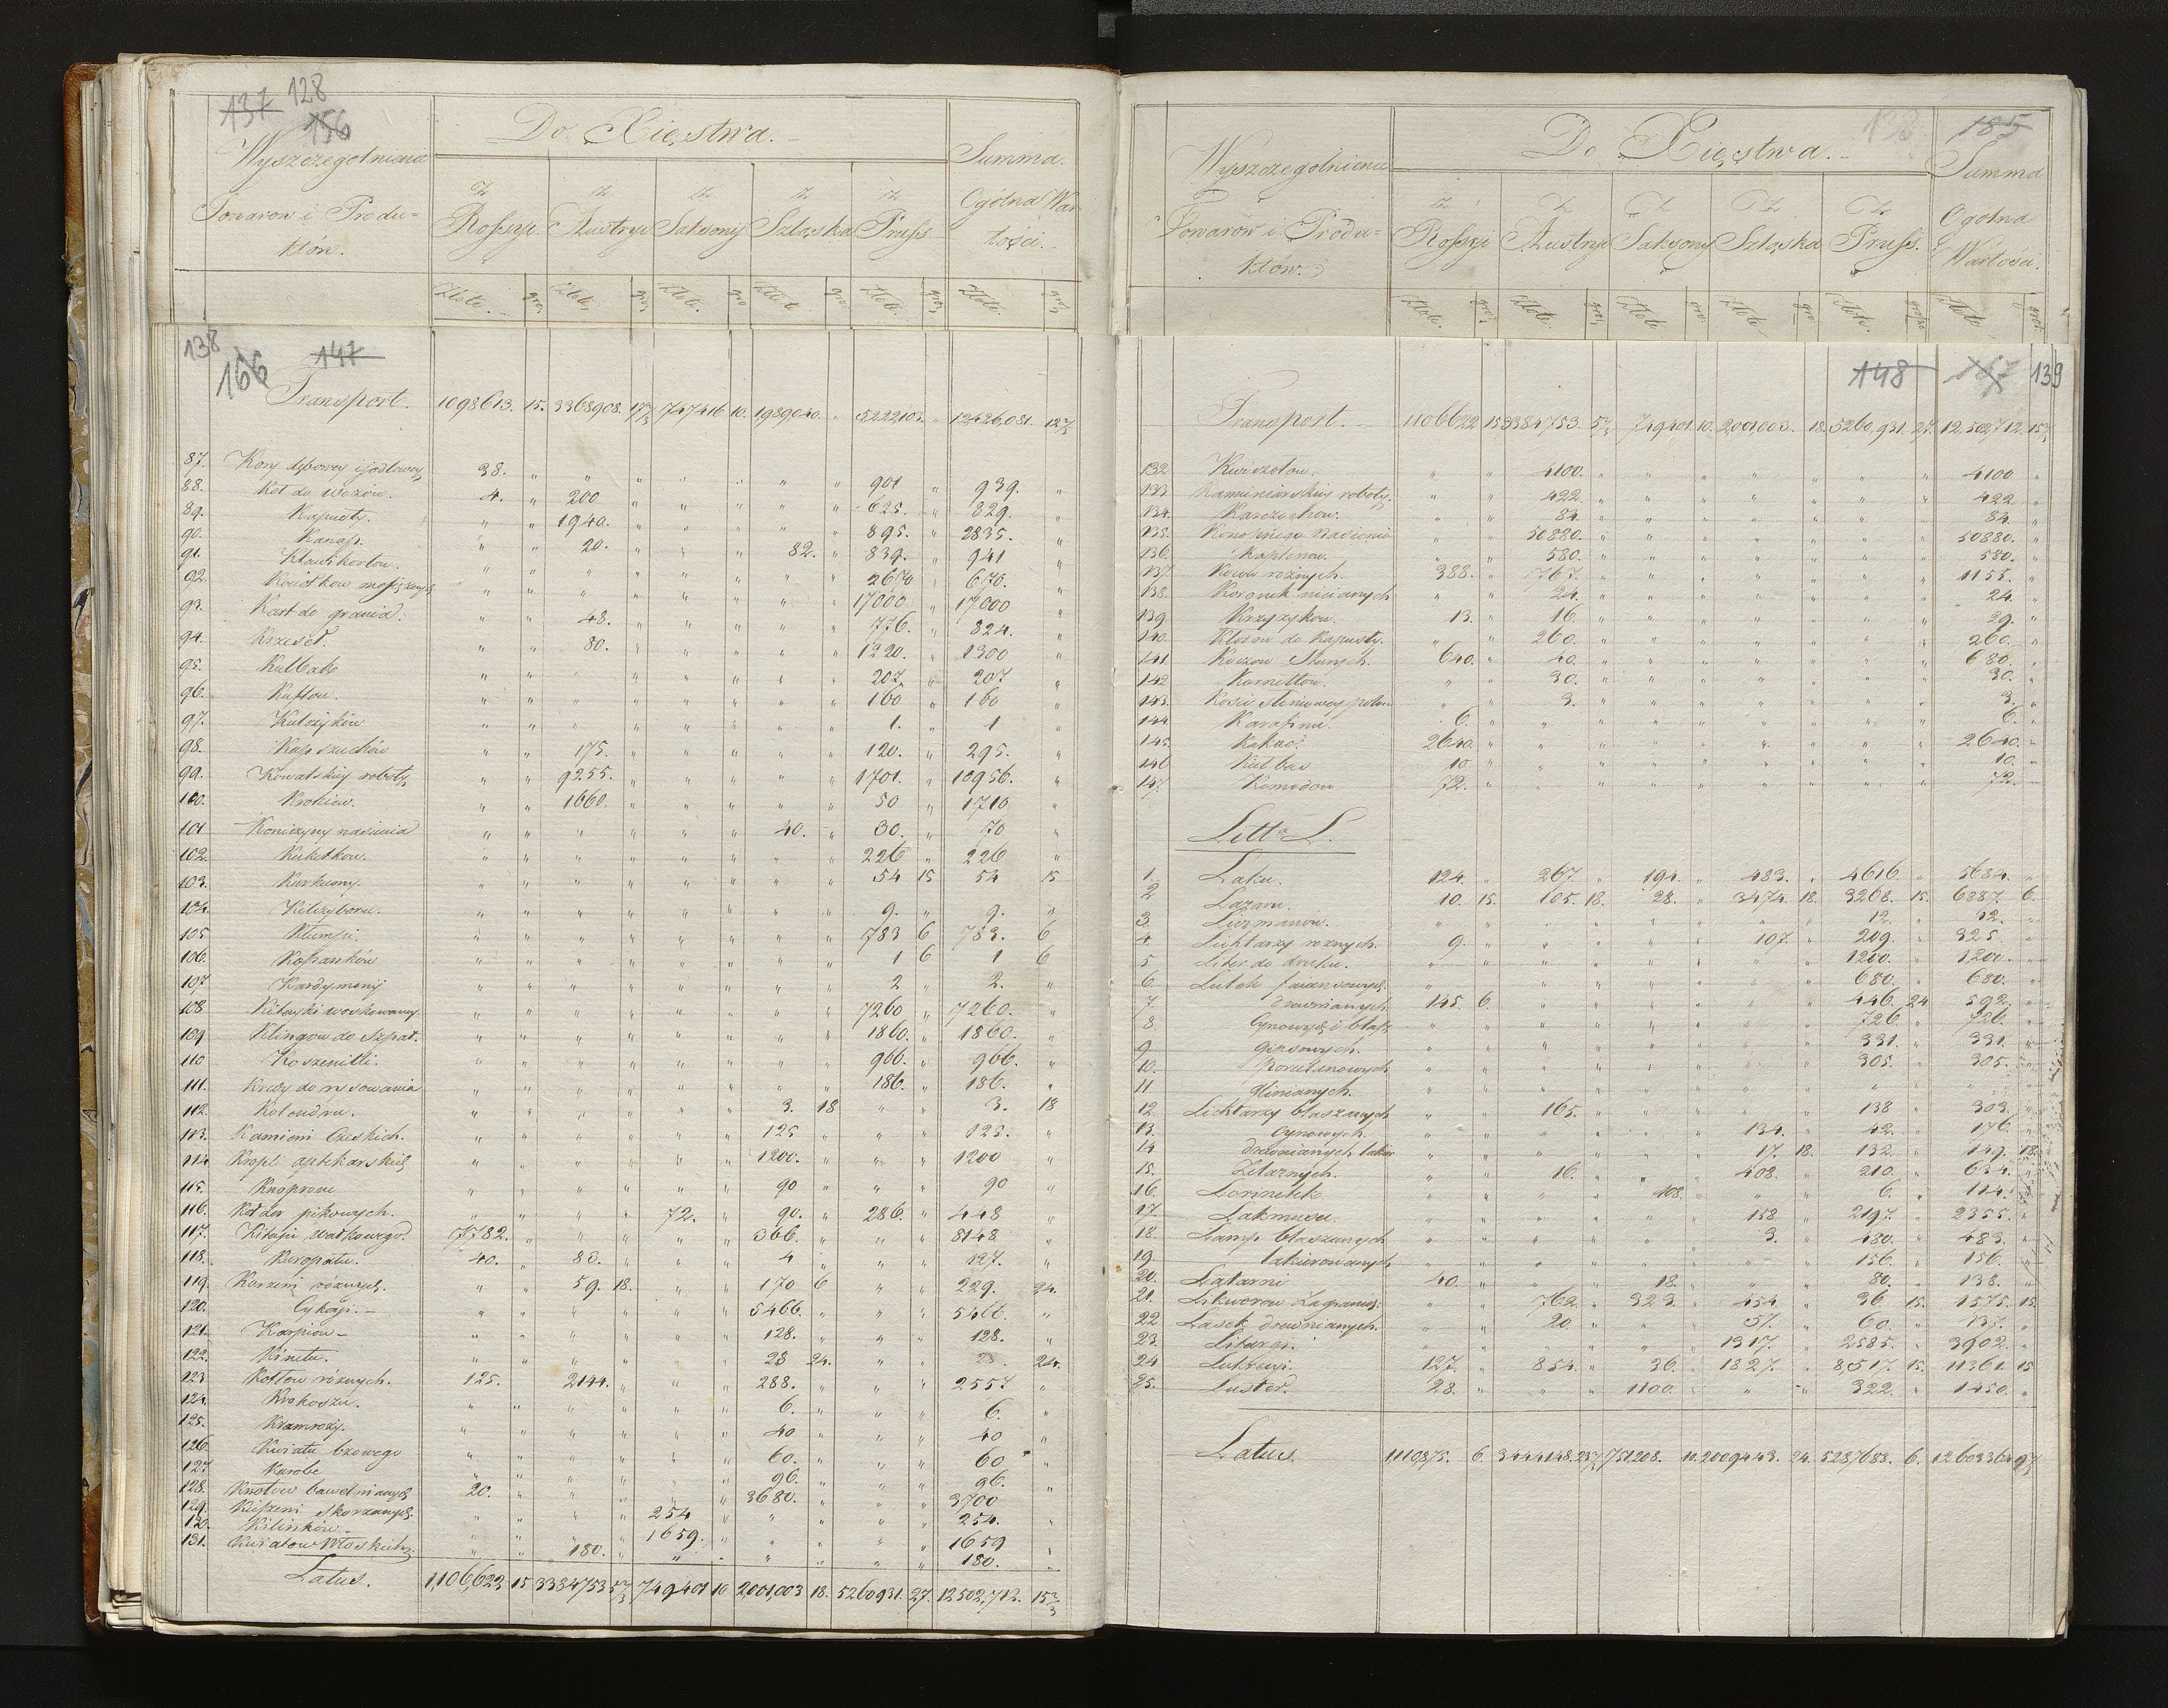 137 128
156
Wyszczególnienie
Towarow i Produ=
któw.
Do Xięstwa.
z Rossyi. z Austryi z Saksonij z Szląska z Pruss
Summa
Ogólna War
tości.
Złote. gro. Złote. gro. Złote. gro Złote gro. Złote. gro. Złote. gro.
138 166 147
Transport. 1098613. 15. 3368908. 17⅔ 747416 10. 1989040. „ 5222,103. „ 12426,081. 12⅔
87. Kory dębowey i Jodłowey 38. „ „ „ „ „ „ „ 901 „ 939. „
88. Kół do wozów. 4. „ 200 „ „ „ „ „ 625. „ 829. „
89. Kapusty. „ „ 1940. „ „ „ „ „ 895. „ 2835. „
90. Kanap. „ „ 20. „ „ „ 82. „ 839. „ 941 „
91. „ „ „ „ „ „ „ „ 2670 „ 670. „
92. „ „ „ „ „ „ „ „ 17000 „ 17000 „
93. Kart do grania. „ „ 48. „ „ „ „ „ 776. „ 824. „
94. Krzeseł. „ „ 80. „ „ „ „ „ 1220. „ 1300 „
95. Kulbak „ „ „ „ „ „ „ „ 207. „ 207 „
96. Kufrow. „ „ „ „ „ „ „ „ 160 „ 160 „
97. Kulczyków „ „ „ „ „ „ „ „ 1. „ 1 „
98. Kapszuchów „ „ 175. „ „ „ „ „ 120. „ 295. „
99. Kowalskiey roboty „ „ 9255. „ „ „ „ „ 1701. „ 10956. „
100. Krokiew. „ „ 1660. „ „ „ „ „ 50 „ 1710 „
101 Koniczyny nasienia „ „ „ „ „ „ 40. „ 30. „ 70 „
102. „ „ „ „ „ „ „ „ 226 „ 226 „
103. Kurkumy. „ „ „ „ „ „ „ „ 54 15 54 15
104. „ „ „ „ „ „ „ „ 9. „ 9. „
105 Klumpi. „ „ „ „ „ „ „ „ 783 6 783. 6
106. Kopanków „ „ „ „ „ „ „ „ 1 6 1 6
107 Kardymonij „ „ „ „ „ „ „ „ 2 „ 2. „
108 Kitayki woskowaney „ „ „ „ „ „ „ „ 7260 „ 7260. „
109 Klingow do Szpad. „ „ „ „ „ „ „ „ 1860. „ 1860. „
110 Koszenilli. „ „ „ „ „ „ „ „ 966. „ 966. „
111. Kredy do rysowania „ „ „ „ „ „ „ „ 186. „ 186. „
112. Kolendru. „ „ „ „ „ „ 3. 18 „ „ 3. 18
113. Kamieni Czeskich. „ „ „ „ „ „ 125 „ „ „ 125. „
114 Kropli aptekarskich „ „ „ „ „ „ 1200. „ „ „ 1200 „
115. Knoprow „ „ „ „ „ „ 90 „ „ „ 90 „
116. Kołder pikowych. „ „ „ „ 72. „ 90. „ 286. „ 448 „
117. Kitayu Watkowego. 7782. „ „ „ „ „ 366. „ „ „ 8148 „
118. Kuropatw. 40. „ 83. „ „ „ 4 „ „ „ 127. „
119. Korzeni różnych. „ „ 59. 18. „ „ 170 6 „ „ 229. 24.
120. Cykoryi. „ „ „ „ „ „ 5466. „ „ „ 5466. „
121. Karpiow „ „ „ „ „ „ 128. „ „ „ 128. „
122. „ „ „ „ „ „ 28 24. „ „ 28. 24.
123 Kotłow różnych. 125. „ 2144. „ „ „ 288. „ „ „ 2557 „
124. Krokoszu. „ „ „ „ „ „ 6. „ „ „ 6. „
125. „ „ „ „ „ „ 40 „ „ „ 40 „
126. Kwiatu bzowego „ „ „ „ „ „ 60. „ „ „ 60 „
127 „ „ „ „ „ „ 96. „ „ „ 96. „
128. Knotow bawełnianych 20. „ „ „ „ „ 3680. „ „ „ 3700 „
129. Kieszeni skorzanych. „ „ „ „ 254 „ „ „ „ „ 254. „
130. Kilimków „ „ „ „ 1659. „ „ „ „ „ 1659 „
131. Kwiatow Włoskich „ „ 180. „ „ „ „ „ „ „ 180. „
Latus. 1,106,622 15 3384753 5⅔ 749401 10 2,001,003 18. 5260931. 27. 12502,712. 15⅔
138 185
Wyszczególnienie
Towarów i Produ=
któw.
Do Xięstwa.
z Rossyi z Austryi z Saksony z Szląska z Pruss.
Summa
Ogólna
Wartości.
Złote. gro. Złote. gro. Złote gro. Złote gro. Złote. gro. Złote gro.
148 167 139
Transport. 1106622 15 3384753. 5⅔ 749401. 10. 2,001,003. 18. 5260,931. 27. 12,502,712. 15⅔
132 Kwiczołow. „ „ 4100. „ „ „ „ „ „ „ 4100 „
133 Kamieniarskiey roboty. „ „ 422. „ „ „ „ „ „ „ 422 „
134. Karczochow. „ „ 84. „ „ „ „ „ „ „ 84. „
135. Konopnego Nasienia „ „ 50880. „ „ „ „ „ „ „ 50880. „
136. Kapłonow. „ „ 580. „ „ „ „ „ „ „ 580. „
137. różnych. 388. „ 767. „ „ „ „ „ „ „ 1155. „
138. Koronek nicianych „ „ 24. „ „ „ „ „ „ „ 24. „
139. Krzyżykow. 13. „ 16. „ „ „ „ „ „ „ 29. „
140. do Kapusty. „ „ 260. „ „ „ „ „ „ „ 260. „
141. Koczow Starych. 640. „ 40. „ „ „ „ „ „ „ 680. „
142 Kornettow. „ „ 30. „ „ „ „ „ „ „ 30. „
143. Kości Słoniowey „ „ 3. „ „ „ „ „ „ „ 3. „
144 Karafinu. 6. „ „ „ „ „ „ „ „ „ 6. „
145. Kakao. 2640. „ „ „ „ „ „ „ „ „ 2640. „
146 Kiełbas 10 „ „ „ „ „ „ „ „ „ 10. „
147. Komodow 72. „ „ „ „ „ „ „ „ „ 72. „
Litt: L.
1. Laku. 124. „ 267. „ 194. „ 483. „ 4616. „ 5684. „
2 10. 15. 105. 18. 28. „ 3474. 18. 3268. 15. 6887. 6.
3. „ „ „ „ „ „ „ „ 12. „ 12. „
4. Lichtarzy rożnych. 9. „ „ „ „ „ 107. „ 209. „ 325 „
5 Liter do druku. „ „ „ „ „ „ „ „ 1200. „ 1200. „
6. Lulek fajansowych. „ „ „ „ „ „ „ „ 680. „ 680. „
7 drewnianych 145. 6. „ „ „ „ „ „ 446. 24 592. „
8. Cynowych i blasz „ „ „ „ „ „ „ „ 726 „ 726. „
9 gipsowych. „ „ „ „ „ „ „ „ 331. „ 331. „
10. Porcelinowych „ „ „ „ „ „ „ „ 305. „ 305. „
11 glinianych. „ „ „ „ „ „ „ „ „ „ „ „
12. Lichtarzy blaszanych „ „ 165. „ „ „ „ „ 138 „ 303. „
13. cynowych. „ „ „ „ „ „ 134. „ 42. „ 176 „
14 drewnianych lakier „ „ „ „ „ „ 17. 18. 132. „ 149. 18.
15. Zelaznych. „ „ 16. „ „ „ 408. „ 210. „ 634. „
16. Lornetek „ „ „ „ 108. „ „ „ 6. „ 114. „
17. Lakmusu. „ „ „ „ „ „ 158 „ 2197. „ 2355. „
18. Lamp blaszanych „ „ „ „ „ „ 3. „ 480. „ 483. „
19. lakierowanych „ „ „ „ „ „ „ „ 156. „ 156. „
20. Latarni 40. „ „ „ 18. „ „ „ 80. „ 138. „
21. Likworow Zagranicz. „ „ 762. „ 323. „ 454 „ 36. 15. 1575. 15.
22 Lasek drewnianych. „ „ 20. „ „ „ 57. „ 60. „ 137. „
23. Litargi. „ „ „ „ „ „ 1317. „ 2585. „ 3902. „
24 127. „ 854. „ 36. „ 1827. „ 8,517. 15. 11361. 15
25. Luster. 28. „ „ „ 1100. „ „ „ 322. „ 1450. „
Latus. 1110875. 6. 3444148. 23⅔ 751208. 10. 2009443. 24. 5287688. 6. 12603364 9⅔